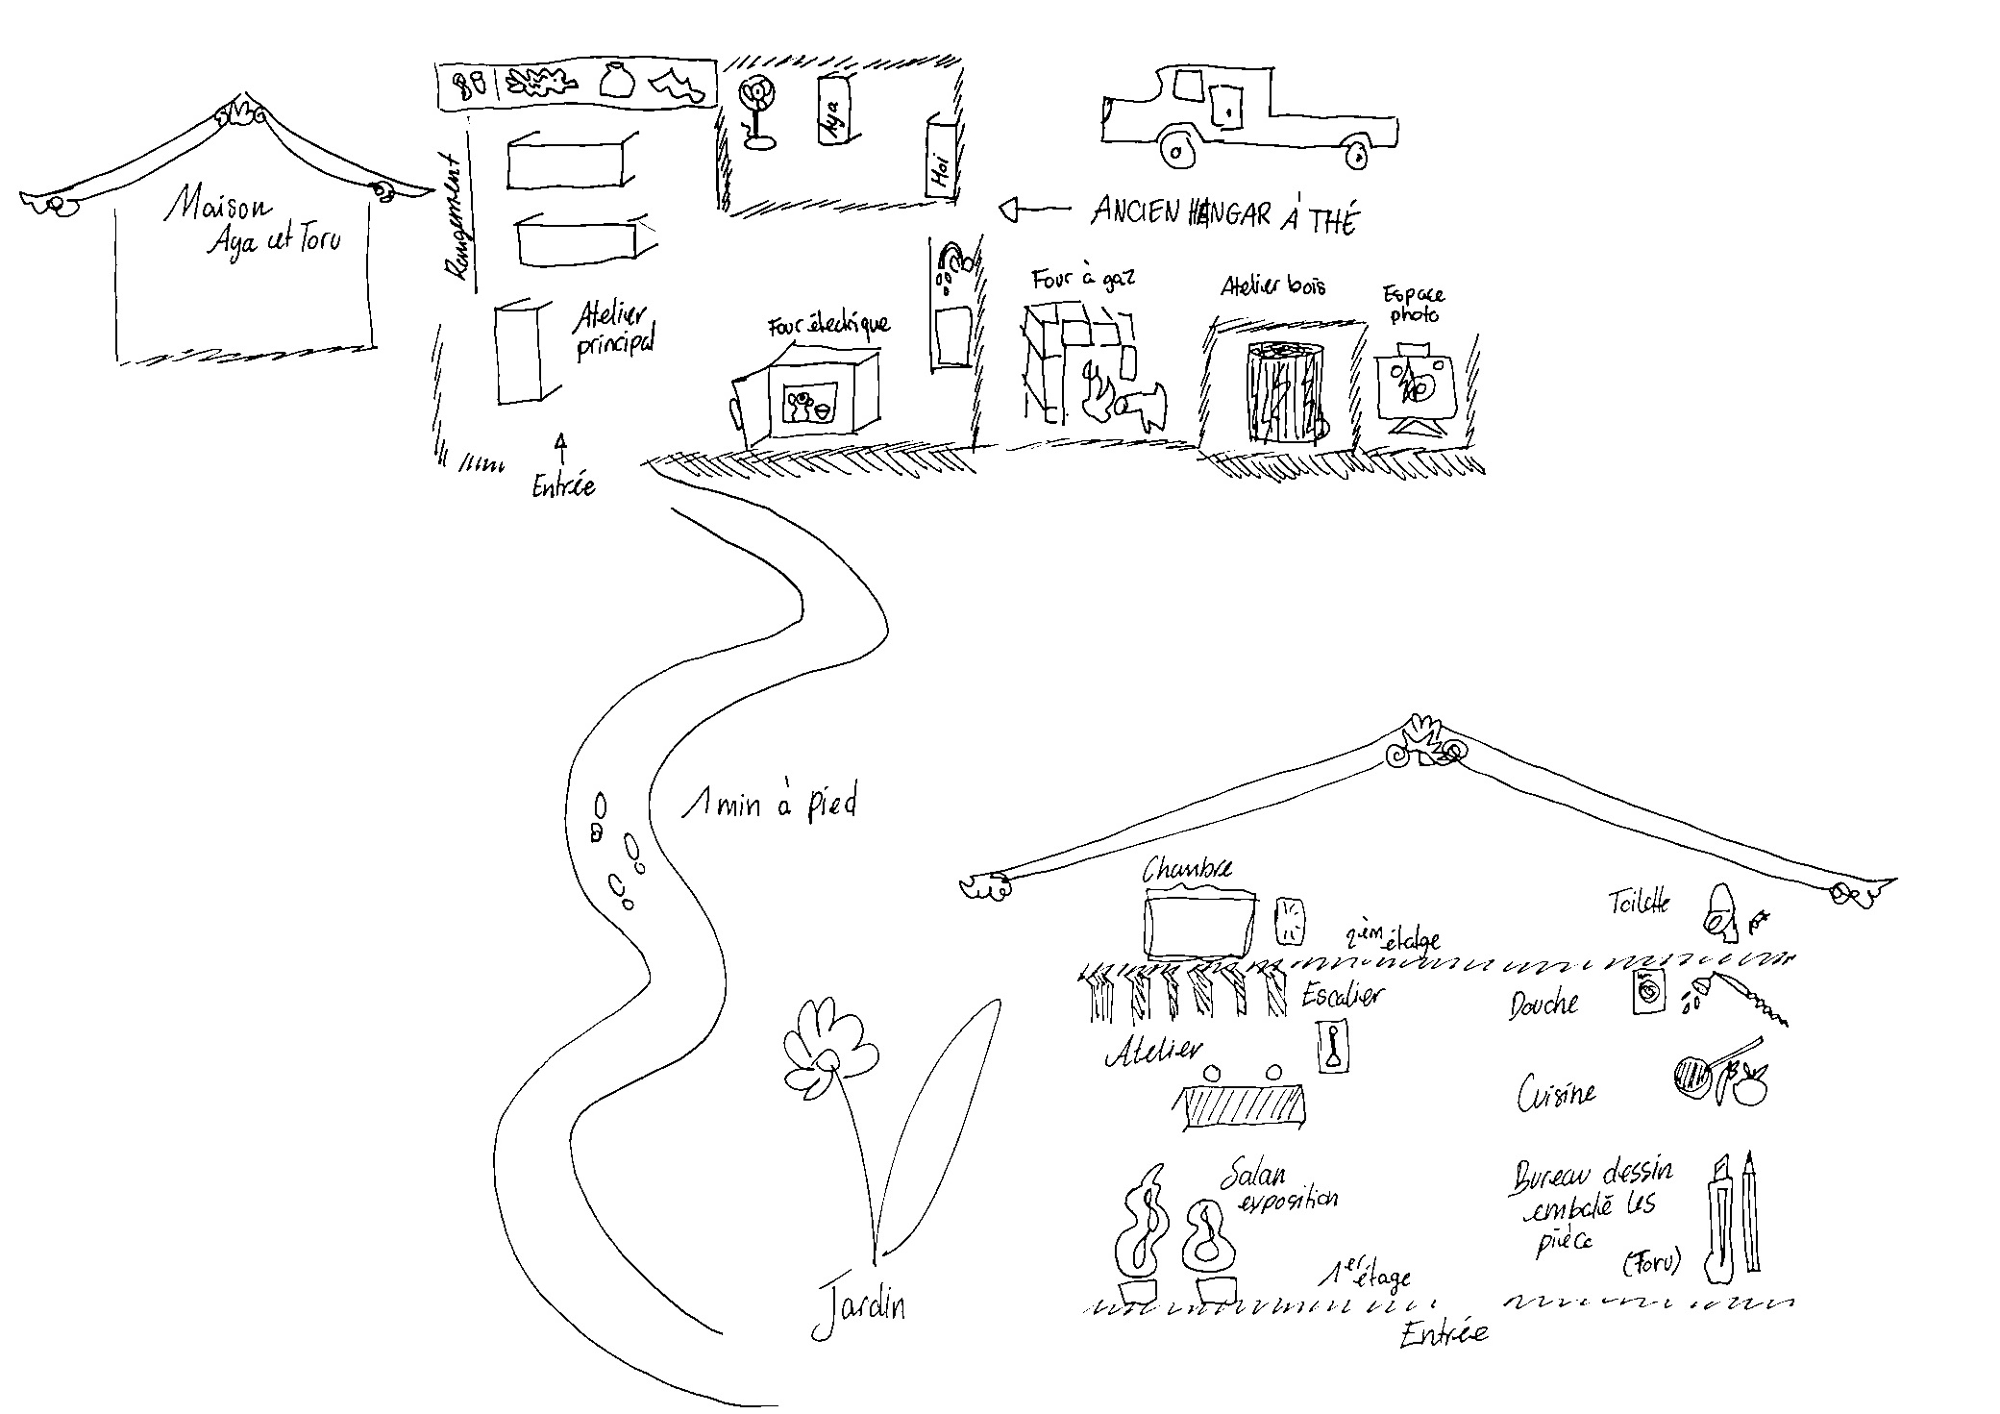 Maison
Aya et Toru
Rangement
Aya
Moi
ANCIEN HANGAR À THÉ
Atelier
principal
Four électrique
Four à gaz
Atelier bois
Espace
photo
Entrée
1 min à pied
Jardin
Chambre
2èm étalge
Toilette
Escalier
Douche
Atelier
Cuisine
Salan
exposition
Bureau dessin
embalé les
pièce
(Toru)
1er étage
Entrée